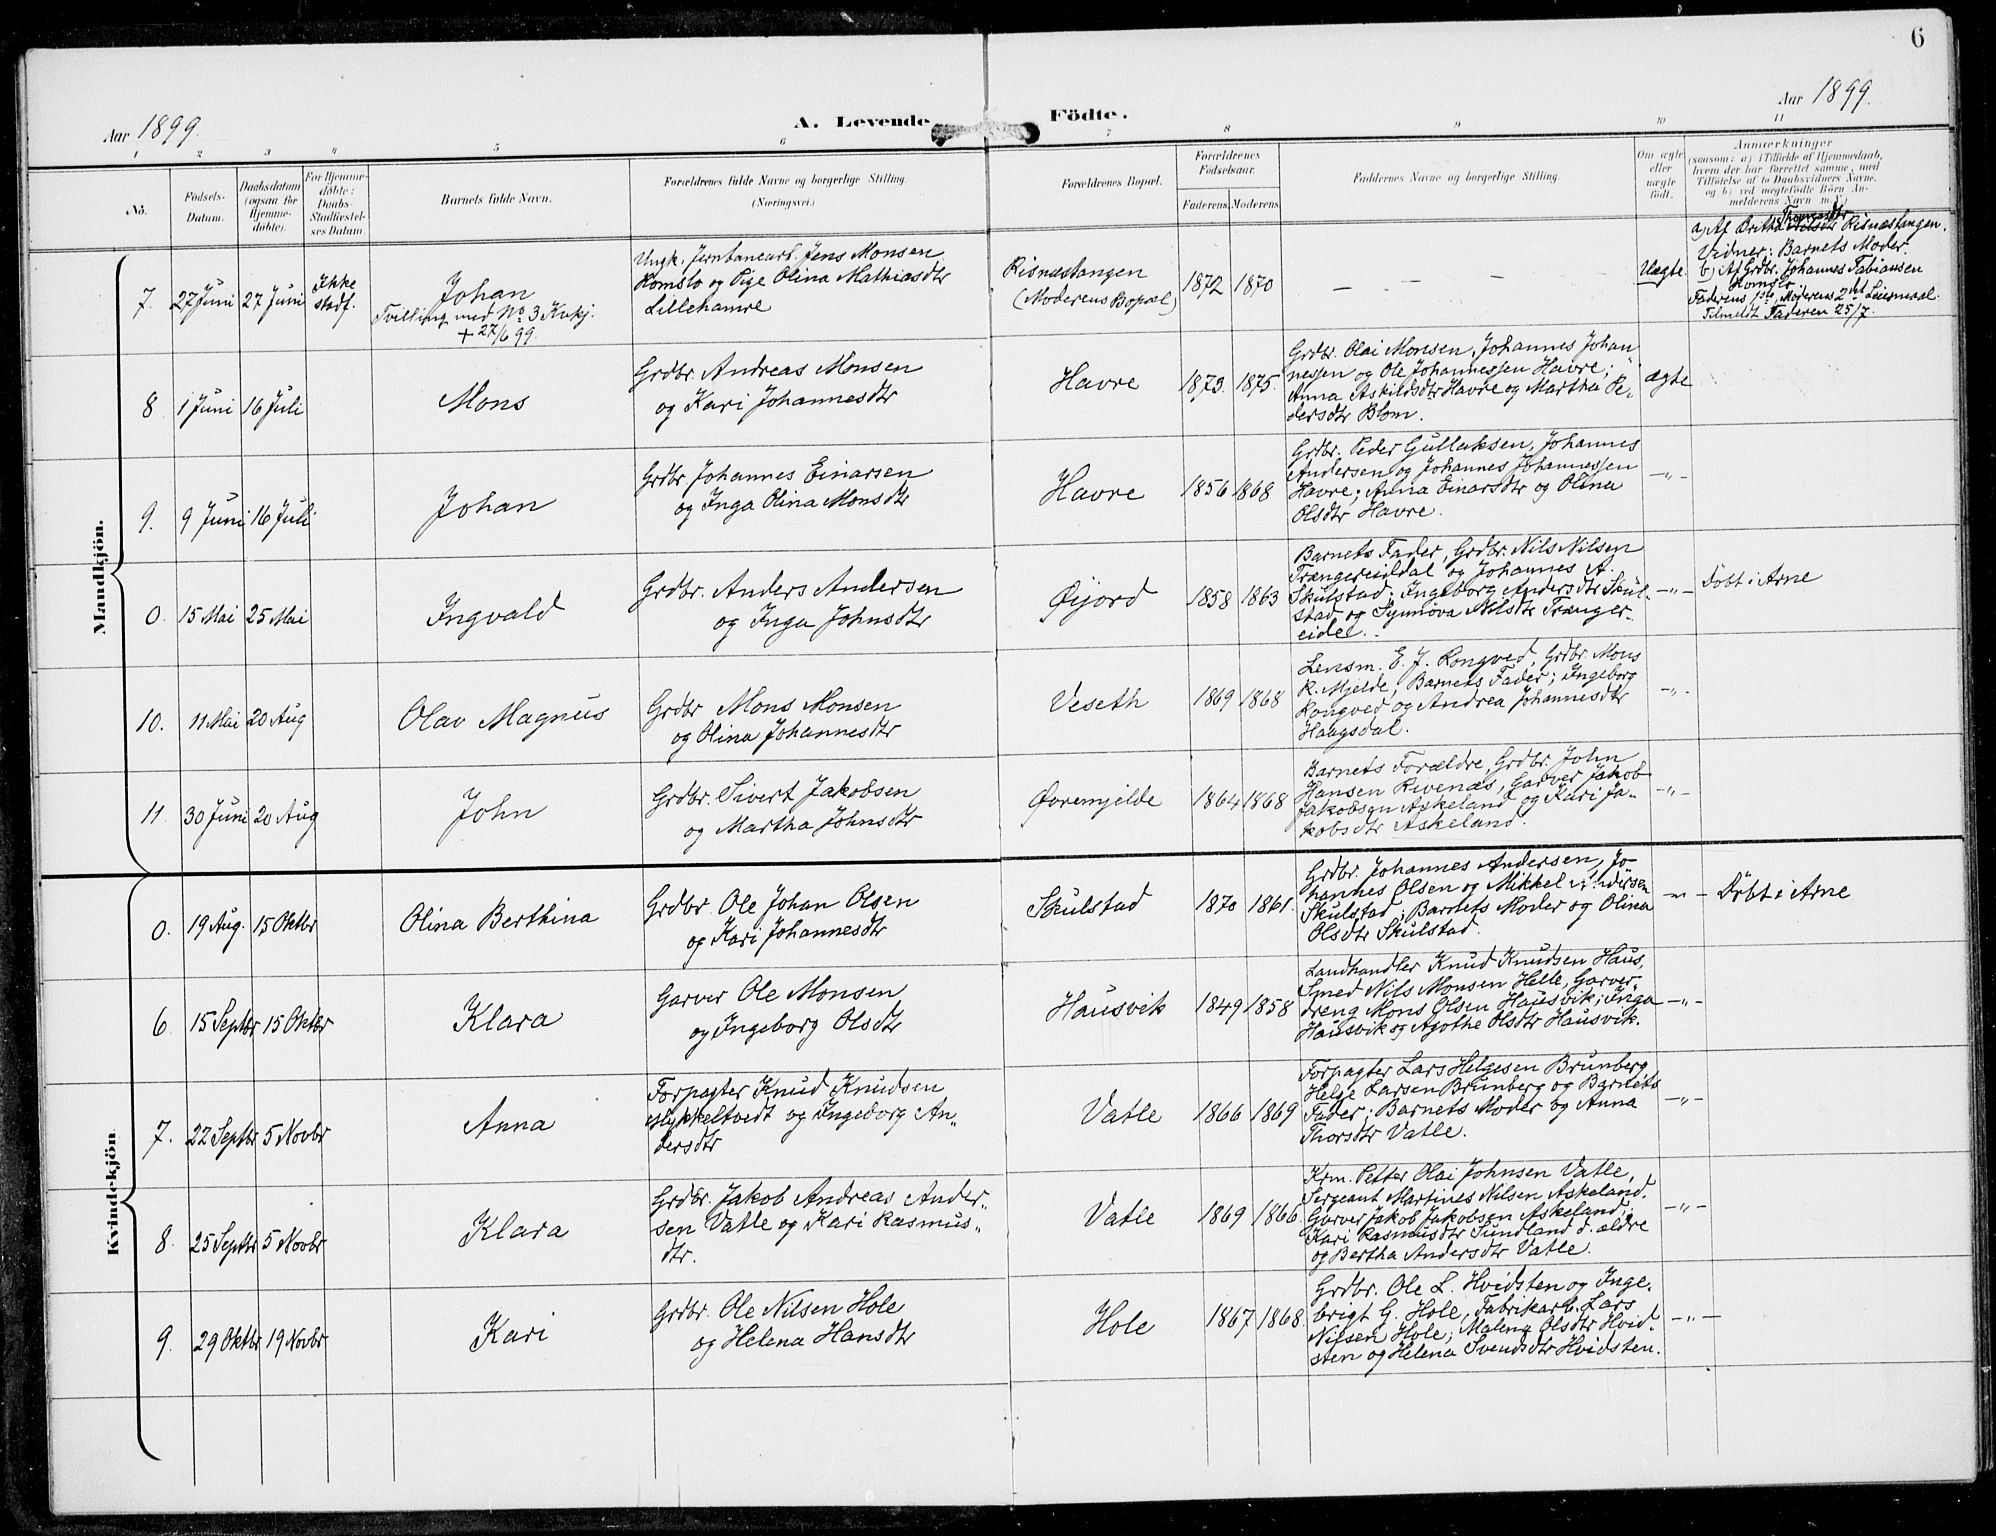 6
Aar 1899.
A. Levende Födte.
Aar 1899.
1 2 3 4 5 6 7 8 9 10 11
No.
Födsels-
Datum.
Daabsdatum
(ogsaa for
Hjemme-
döbte).
For Hjemme-
döbte:
Daabs-
Stadfæstel-
ses Datum.
Barnets fulde Navn.
Forældrenes fulde Navne og borgerlige Stilling
(Næringsvei.)
Forældrenes Bopæl.
Forældrenes
Födselsaar.
Faderens. Moderens.
Faddernes Navne og borgerlige Stilling.
Om ægte
eller
uægte
födt.
Anmærkninger
(saasom: a) i Tilfælde af Hjemmedaab,
hvem der har forrettet samme, med
Tilföielse af to Daabsvidners Navne,
og b) ved uægtefödte Börn An-
melderens Navn m. m.)
Mandkjön.
7. 27 Juni 27 Juni
Ikke
stadf.
Johan
Tvilling med No 3 Kvkj.
+ 27/6 99.
Ungk. Jernbanearb. Jens Monsen
Romslo og Pige Olina Mathiasdtr
Lillehamre
Risnæstangen
(Moderens Bopæl)
1872 1870
— — —
Uægte
Thomasdtr
a) Af Britha Nilsdtr Risnæstangen.
Vidner: Barnets Moder.
b) Af Grdbr. Johannes Fabiansen
Romslo
Faderens 1ste, Moderens 2det Leiermaal.
Tilmeldt Faderen 25/7.
8 1 Juni 16 Juli
Mons
Grdbr. Andreas Monsen
og Kari Johannesdtr
Havre
1873. 1875.
Grdbr. Olai Monsen, Johannes Johan
nessen og Ole Johannessen Havre;
Anna Askildsdtr Havre og Martha Pe-
dersdtr Blom.
ægte
9. 9 Juni 16 Juli
Johan
Grdbr. Johannes Einarsen
og Inga Olina Monsdtr
Havre
1856 1868
Grdbr. Peder Gullaksen, Johannes
Andersen og Johannes Johannessen
Havre; Anna Einarsdtr og Olina
Olsdtr Havre.
—"—
0. 15 Mai 25 Mai
Ingvald
Grdbr. Anders Andersen
og Inga Johnsdtr
Øijord
1858 1863
Barnets Fader, Grdbr. Nils Nilsen
Trængereiddal og Johannes A.
Skulstad; Ingeborg Andersdtr Skul-
stad og Synnöva Nilsdtr Trænger-
eidet.
—"—
Döbt i Arne
10. 11 Mai 20 Aug
Olav Magnus
Grdbr Mons Monsen
og Olina Johannesdtr
Veseth
1869 1868
Lensm. E. J. Rongved, Grdbr. Mons
R. Mjelde, Barnets Fader; Ingeborg
Rongved og Andrea Johannesdtr
Haugsdal.
—"—
11. 30 Juni 20 Aug
John
Grdbr. Sivert Jakobsen
og Martha Johnsdtr
Øvremjelde
1864 1868
Barnets Forældre, Grdbr. John
Hansen Rivenæs, Garver Jakob
Jakobsen Askeland og Kari Ja-
kobsdtr Askeland.
—"—
Kvindekjön.
0. 19 Aug. 15 Oktbr
Olina Berthina
Grdbr. Ole Johan Olsen
og Kari Johannesdtr
Skulstad
1870 1861.
Grdbr. Johannes Andersen, Jo-
hannes Olsen og Mikkel Andersen
Skulstad; Barnets Moder og Olina
Olsdtr Skulstad.
—"—
Döbt i Arne
6. 15 Septbr 15 Oktbr
Klara
Garver Ole Monsen
og Ingeborg Olsdtr
Hausvik
1849 1858
Landhandler Knud Knudsen Haus,
Smed Nils Monsen Helle, Garver-
dreng Mons Olsen Hausvik; Inga
Hausvik og Agothe Olsdtr Hausvik.
—"—
7. 22 Septbr 5 Novbr
Anna
Forpagter Knud Knudsen
Mykkeltvedt og Ingeborg An-
dersdtr
Vatle
1866 1869
Forpagter Lars Helgesen Brunberg
Helje Larsen Brunberg og Barnets
Fader; Barnets Moder og Anna
Thorsdtr Vatle.
—"—
8. 25 Septbr 5 Novbr
Klara
Grdbr. Jakob Andreas Ander-
sen Vatle og Kari Rasmus-
dtr.
Vatle
1869 1866.
Krm. Petter Olai Johnsen Vatle,
Sergeant Martines Nilsen Askeland.
Garver Jakob Jakobsen Askeland;
Kari Rasmusdtr Sundland d. ældre
og Bertha Andersdtr Vatle.
—"—
9. 29 Oktbr 19 Novbr
Kari
Grdbr. Ole Nilsen Hole
og Helena Hansdtr
Hole
1867 1868.
Grdbr. Ole L. Hvidsten og Inge-
brigt G. Hole, Fabrikarb. Lars
Nilsen Hole; Malena Olsdtr Hvid-
sten og Helena Svendsdtr Hvidsten.
—"—